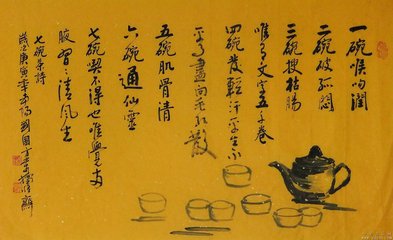 一碗喉吻潤
二碗破孤悶
三碗搜枯腸
唯有文字五千卷
四碗發輕汗平生不
平事盡向毛孔散
五碗肌骨清
六碗通仙靈
七碗喫不得也唯覺兩
腋習習清風生
七碗茶詩
歲次庚寅年